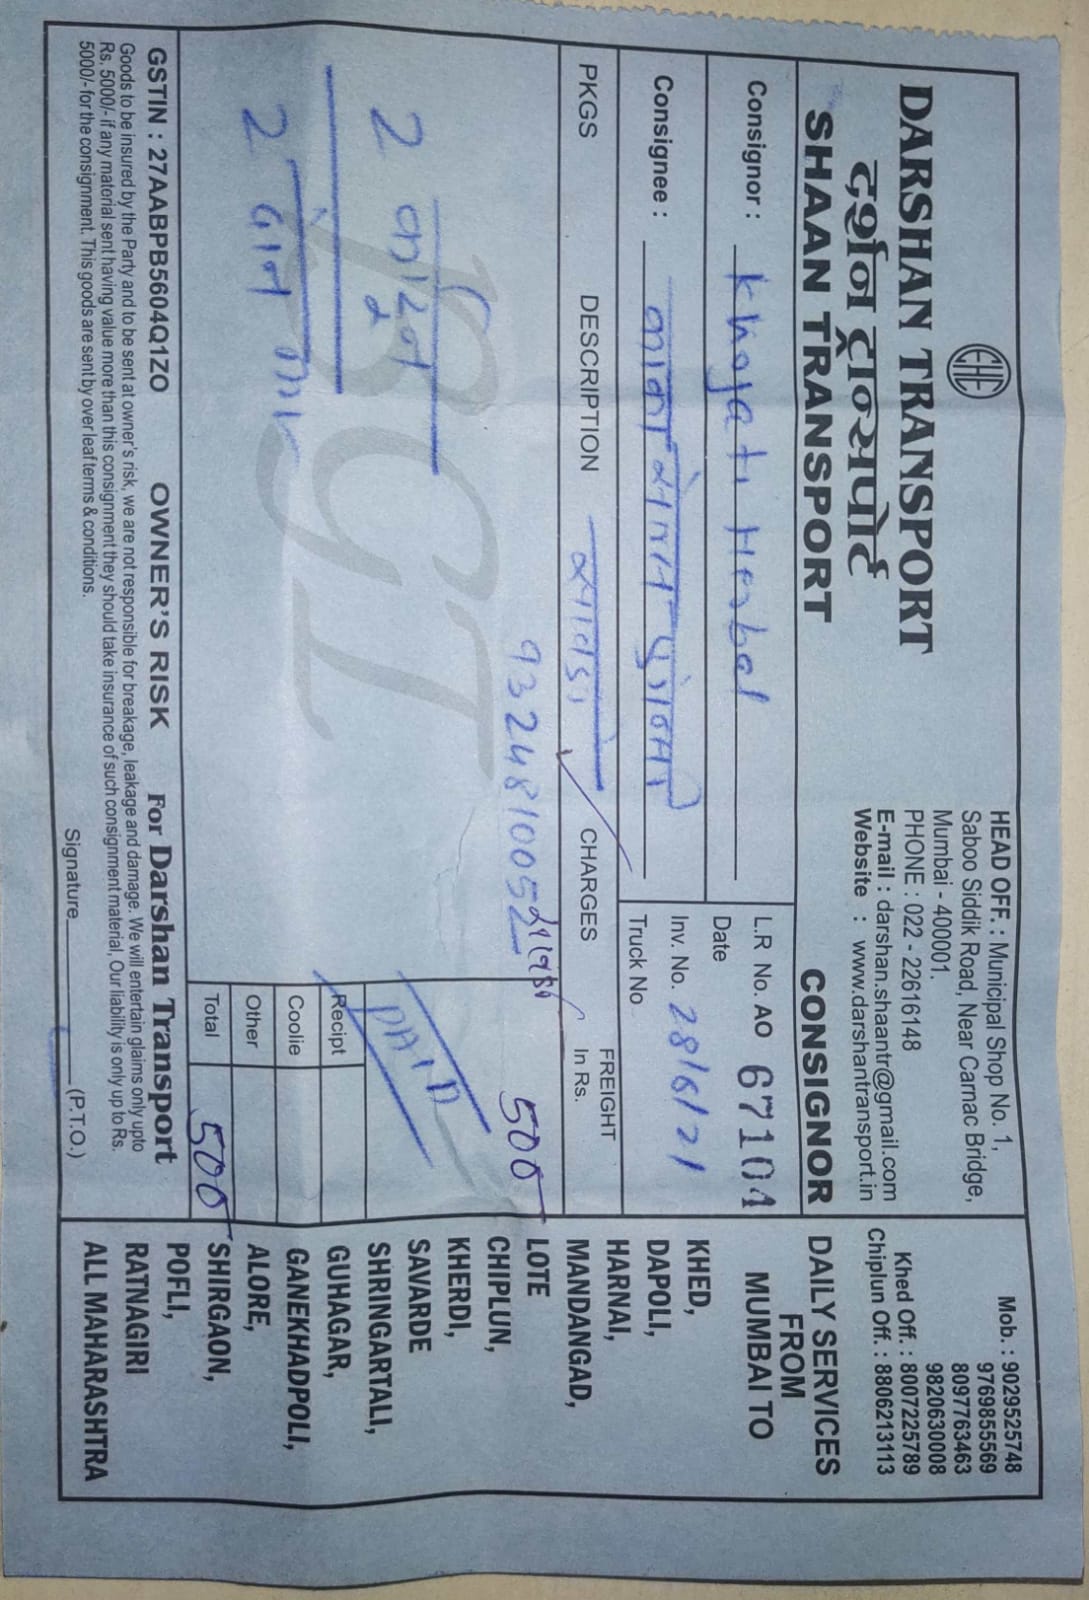 EHC
DARSHAN TRANSPORT
दर्शन ट्रान्सपोर्ट
SHAAN TRANSPORT
HEAD OFF. : Municipal Shop No. 1,
Saboo Siddik Road, Near Carnac Bridge,
Mumbai - 400001.
PHONE : 022 - 22616148
E-mail : darshan.shaantr@gmail.com
Website : www.darshantransport.in
Mob. : 9029525748
9769855569
8097763463
9820630008
Khed Off. : 8007225789
Chiplun Off. : 8806213113
CONSIGNOR
Consignor : Khyati Herbal
L.R No. AO 67104
Date
Consignee :
Inv. No. 28/6/21
Truck No.
PKGS DESCRIPTION CHARGES FREIGHT In Rs.
9324810052
500
2
2
PAID
Recipt
Coolie
Other
Total 500
DAILY SERVICES
FROM
MUMBAI TO
KHED,
DAPOLI,
HARNAI,
MANDANGAD,
LOTE
CHIPLUN,
KHERDI,
SAVARDE
SHRINGARTALI,
GUHAGAR,
GANEKHADPOLI,
ALORE,
SHIRGAON,
POFLI,
RATNAGIRI
ALL MAHARASHTRA
GSTIN : 27AABPB5604Q1ZO OWNER'S RISK For Darshan Transport
Goods to be insured by the Party and to be sent at owner's risk, we are not responsible for breakage, leakage and damage. We will entertain glaims only upto
Rs. 5000/- if any matorial sent having value more than this consignment they should take insurance of such consignment material, Our liability is only up to Rs.
5000/- for the consignment. This goods are sent by over leaf terms & conditions.
Signature (P.T.O.)